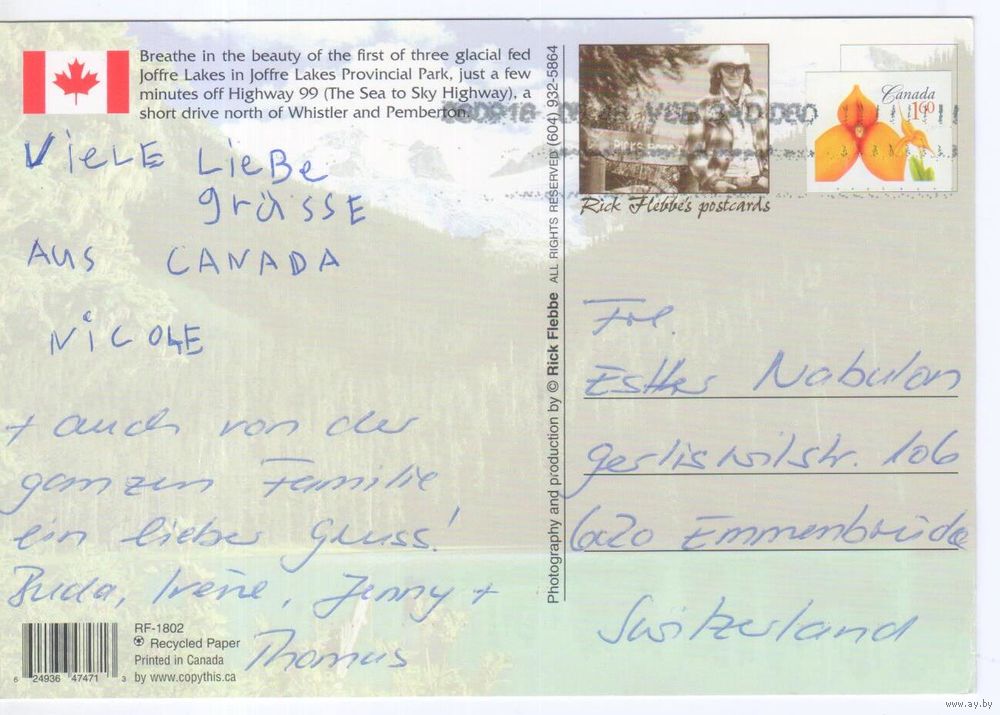 Breathe in the beauty of the first of three glacial fed
Joffre Lakes in Joffre Lakes Provincial Park, just a few
minutes off Highway 99 (The Sea to Sky Highway), a
short drive north of Whistler and Pemberton.
ViELE LIEBE
grÄSSE
AUS CANADA
NiCOLE
+ auch von der
ganzen Familie
ein lieber Gruss!
Irene, Jenny +
Thomas
RF-1802
Recycled Paper
Printed in Canada
by www.copythis.ca
6 24936 47471 3
Photography and production by © Rick Flebbe ALL RIGHTS RESERVED (604) 932-5864
Rick Flebbe's postcards
Canada
1.60
Frl.
Esther Nabulon
gerliswilstr. 106
6020 Emmenbrücke
Switzerland
www.ay.by